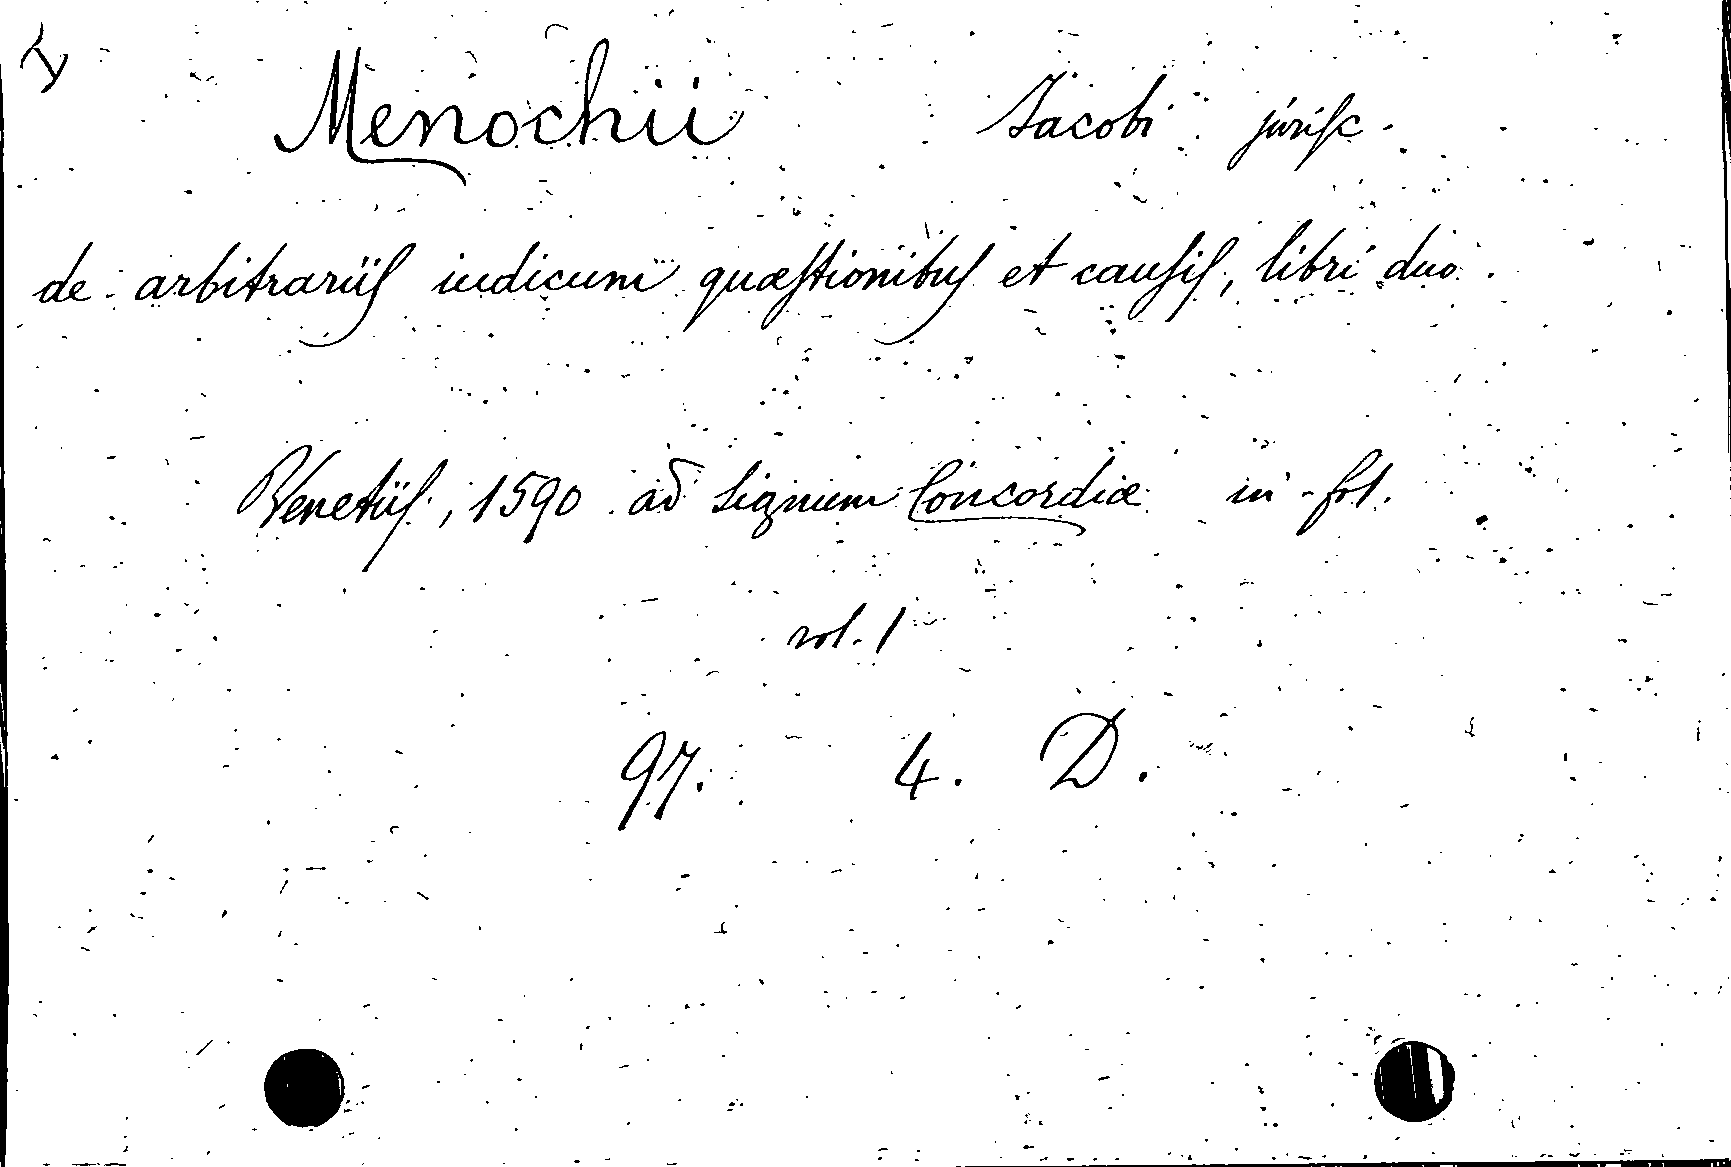 Menochii Jacobi juriſc.
de arbitrariiſ iudicum quæſtionibuſ et cauſiſ, libri duo.
Venetiiſ, 1590 ad signum Concordiæ in-fol.
vol. 1
97. 4. D.